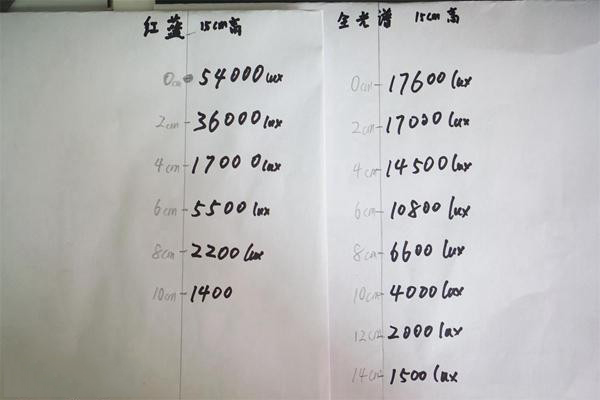 红蓝 15cm高
0cm 54000lux
2cm 36000lux
4cm 17000lux
6cm 5500lux
8cm 2200lux
10cm 1400
全光谱 15cm高
0cm 17600lux
2cm 17000lux
4cm 14500lux
6cm 10800lux
8cm 6600lux
10cm 4000lux
12cm 2000lux
14cm 1500lux